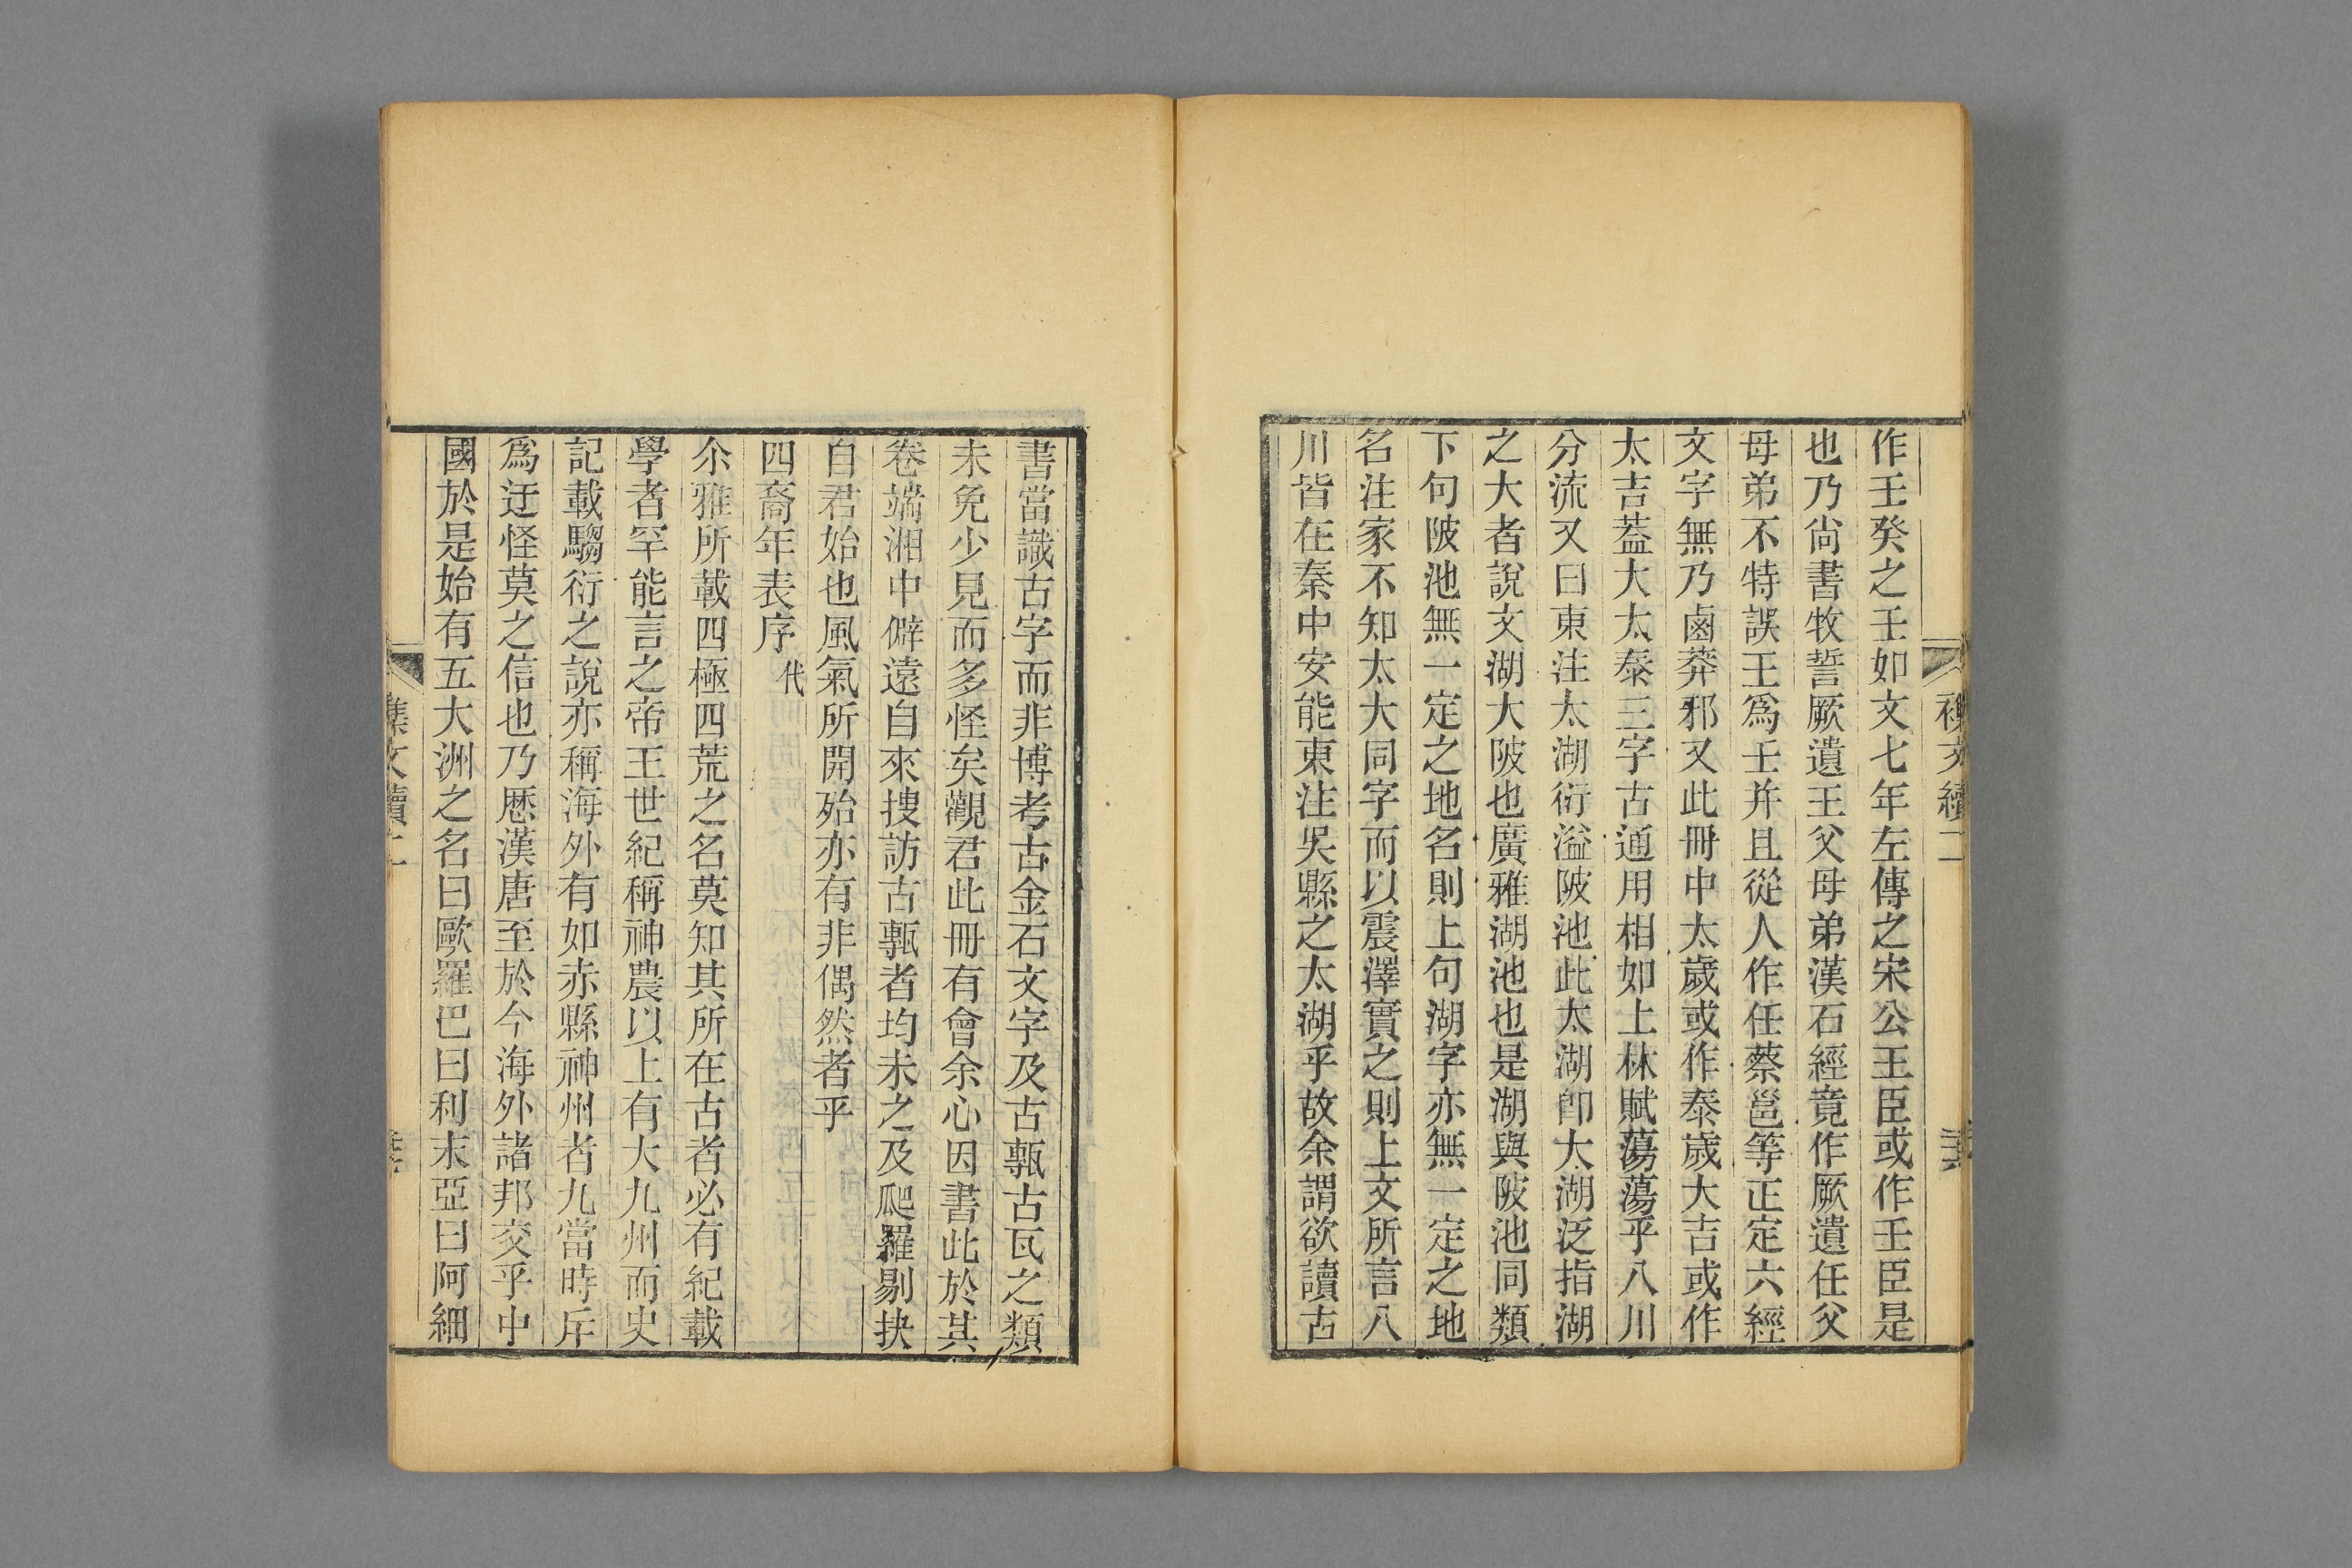 作壬癸之壬如文七年左傳之宋公王臣或作壬臣是
也乃尙書牧誓厥遺王父母弟漢石經竟作厥遺任父
母弟不特誤王爲壬并且從人作任蔡邕等正定六經
文字無乃鹵莽邪又此冊中太歲或作泰歲大吉或作
太吉蓋大太泰三字古通用相如上林賦蕩蕩乎八川
分流又曰東注太湖衍溢陂池此太湖卽大湖泛指湖
之大者說文湖大陂也廣雅湖池也是湖與陂池同類
下句陂池無一定之地名則上句湖字亦無一定之地
名注家不知太大同字而以震澤實之則上文所言八
川皆在秦中安能東注吳縣之太湖乎故余謂欲讀古
書當識古字而非博考古金石文字及古甎古瓦之類
未免少見而多怪矣觀君此冊有會余心因書此於其
卷端湘中僻遠自來搜訪古甎者均未之及爬羅剔抉
自君始也風氣所開殆亦有非偶然者乎
四裔年表序 代
尒雅所載四極四荒之名莫知其所在古者必有紀載
學者罕能言之帝王世紀稱神農以上有大九州而史
記載騶衍之說亦稱海外有如赤縣神州者九當時斥
爲迂怪莫之信也乃厯漢唐至於今海外諸邦交乎中
國於是始有五大洲之名曰歐羅巴曰利末亞曰阿細